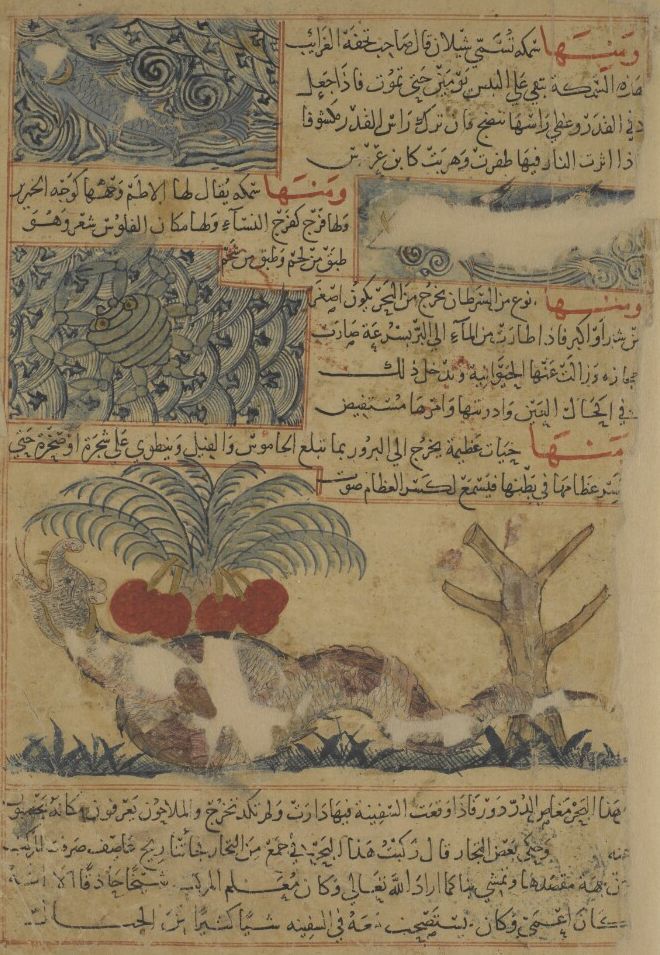 ومنها سمكة تسمى شيلان قال صاحب تحفة الغرائب
هذه السمكة تبقى على اليبس يومين حتى تموت فاذا جعل
في القدر وغطى راسها تنضج فان ترك راس القدر مكشوفا
اذا اثرت النار فيها طفرت وهربت كابن عرس
ومنها سمكه يقال لها الاطم وجهها كوجه الخنزير
ولها فرج كفرج النسآء ولها مكان الفلوس شعر وهو
طبق من لحم وطبق من شحم
ومنها نوع من السرطان يخرج من البحر يكون اصغر
من شبر او اكبر فاذا طارت من المآء الى البر بسرعة صارت
حجارة وزالت عنها الحيوانية ويدخل ذلك
في اكحال العين وادويتها وامرها مستفيض
ومنها حيات عظيمة يخرج الى البر وربما تبلع الجاموس والفيل وينطوي على شجرة او صخرة حتى
يكسر عظامها في بطنها فيسمع لكسر العظام صوت
هذا البحر مغاص الدر دور فاذا وقعت السفينة فيها دارت ولم تكد تخرج والملاحون يعرفون مكانه
وحكى بعض التجار قال ركبت هذا البحر في جمع من التجار فجاءتنا ريح عاصف صرفت المركب
مقصدها ويمشي بنا كما اراد الله تعالى وكان معلم المركب شيخا حاذقا الا انه
كان اعمى وكان يستصحب معه في السفينة شيئا كثيرا من الحبال